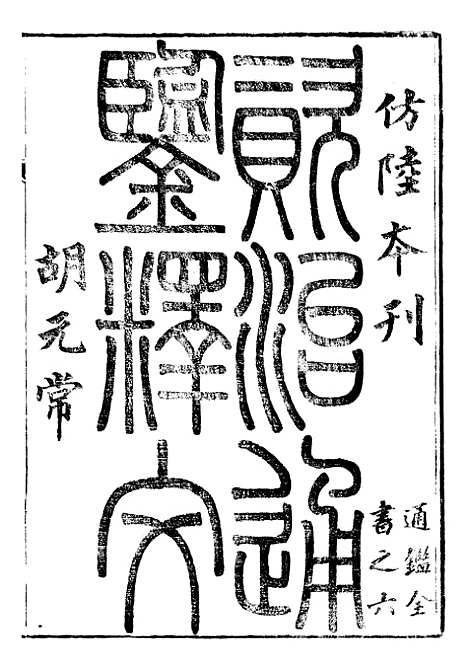 仿陸本刊
通鑑全
書之六
資治通
鑒釋文
胡元常